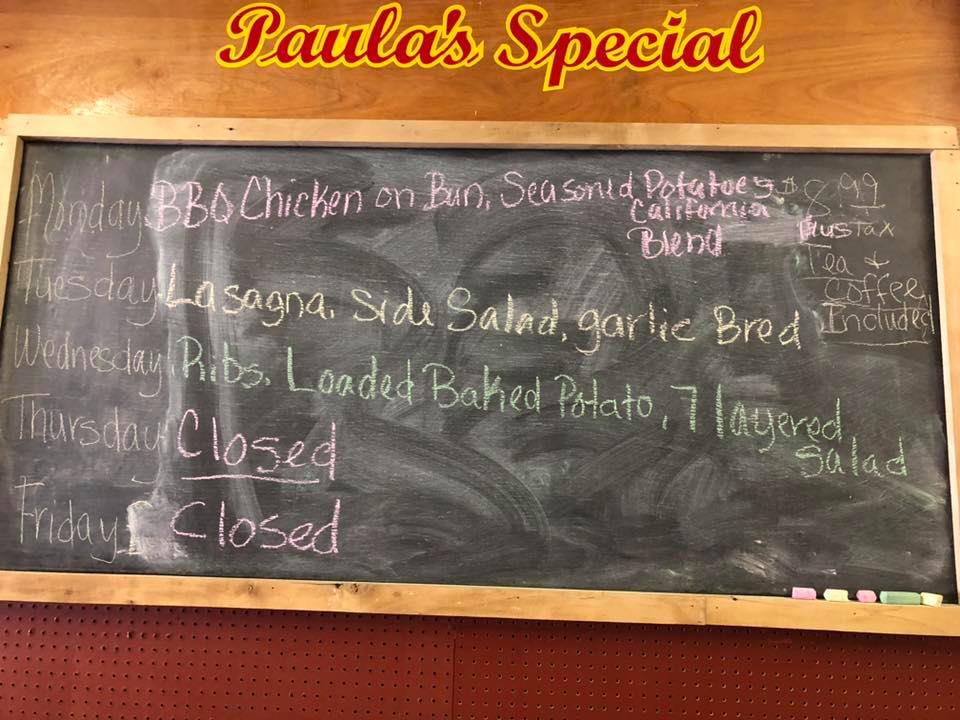 Paula's Special
Monday BBQ Chicken on Bun, Seasoned Potatoes $8.99
California
Blend
Plus Tax
Tea &
coffee
Included
Tuesday Lasagna, Side Salad, garlic Bred
Wednesday Ribs, Loaded Baked Potato, 7 layered
Salad
Thursday Closed
Friday Closed